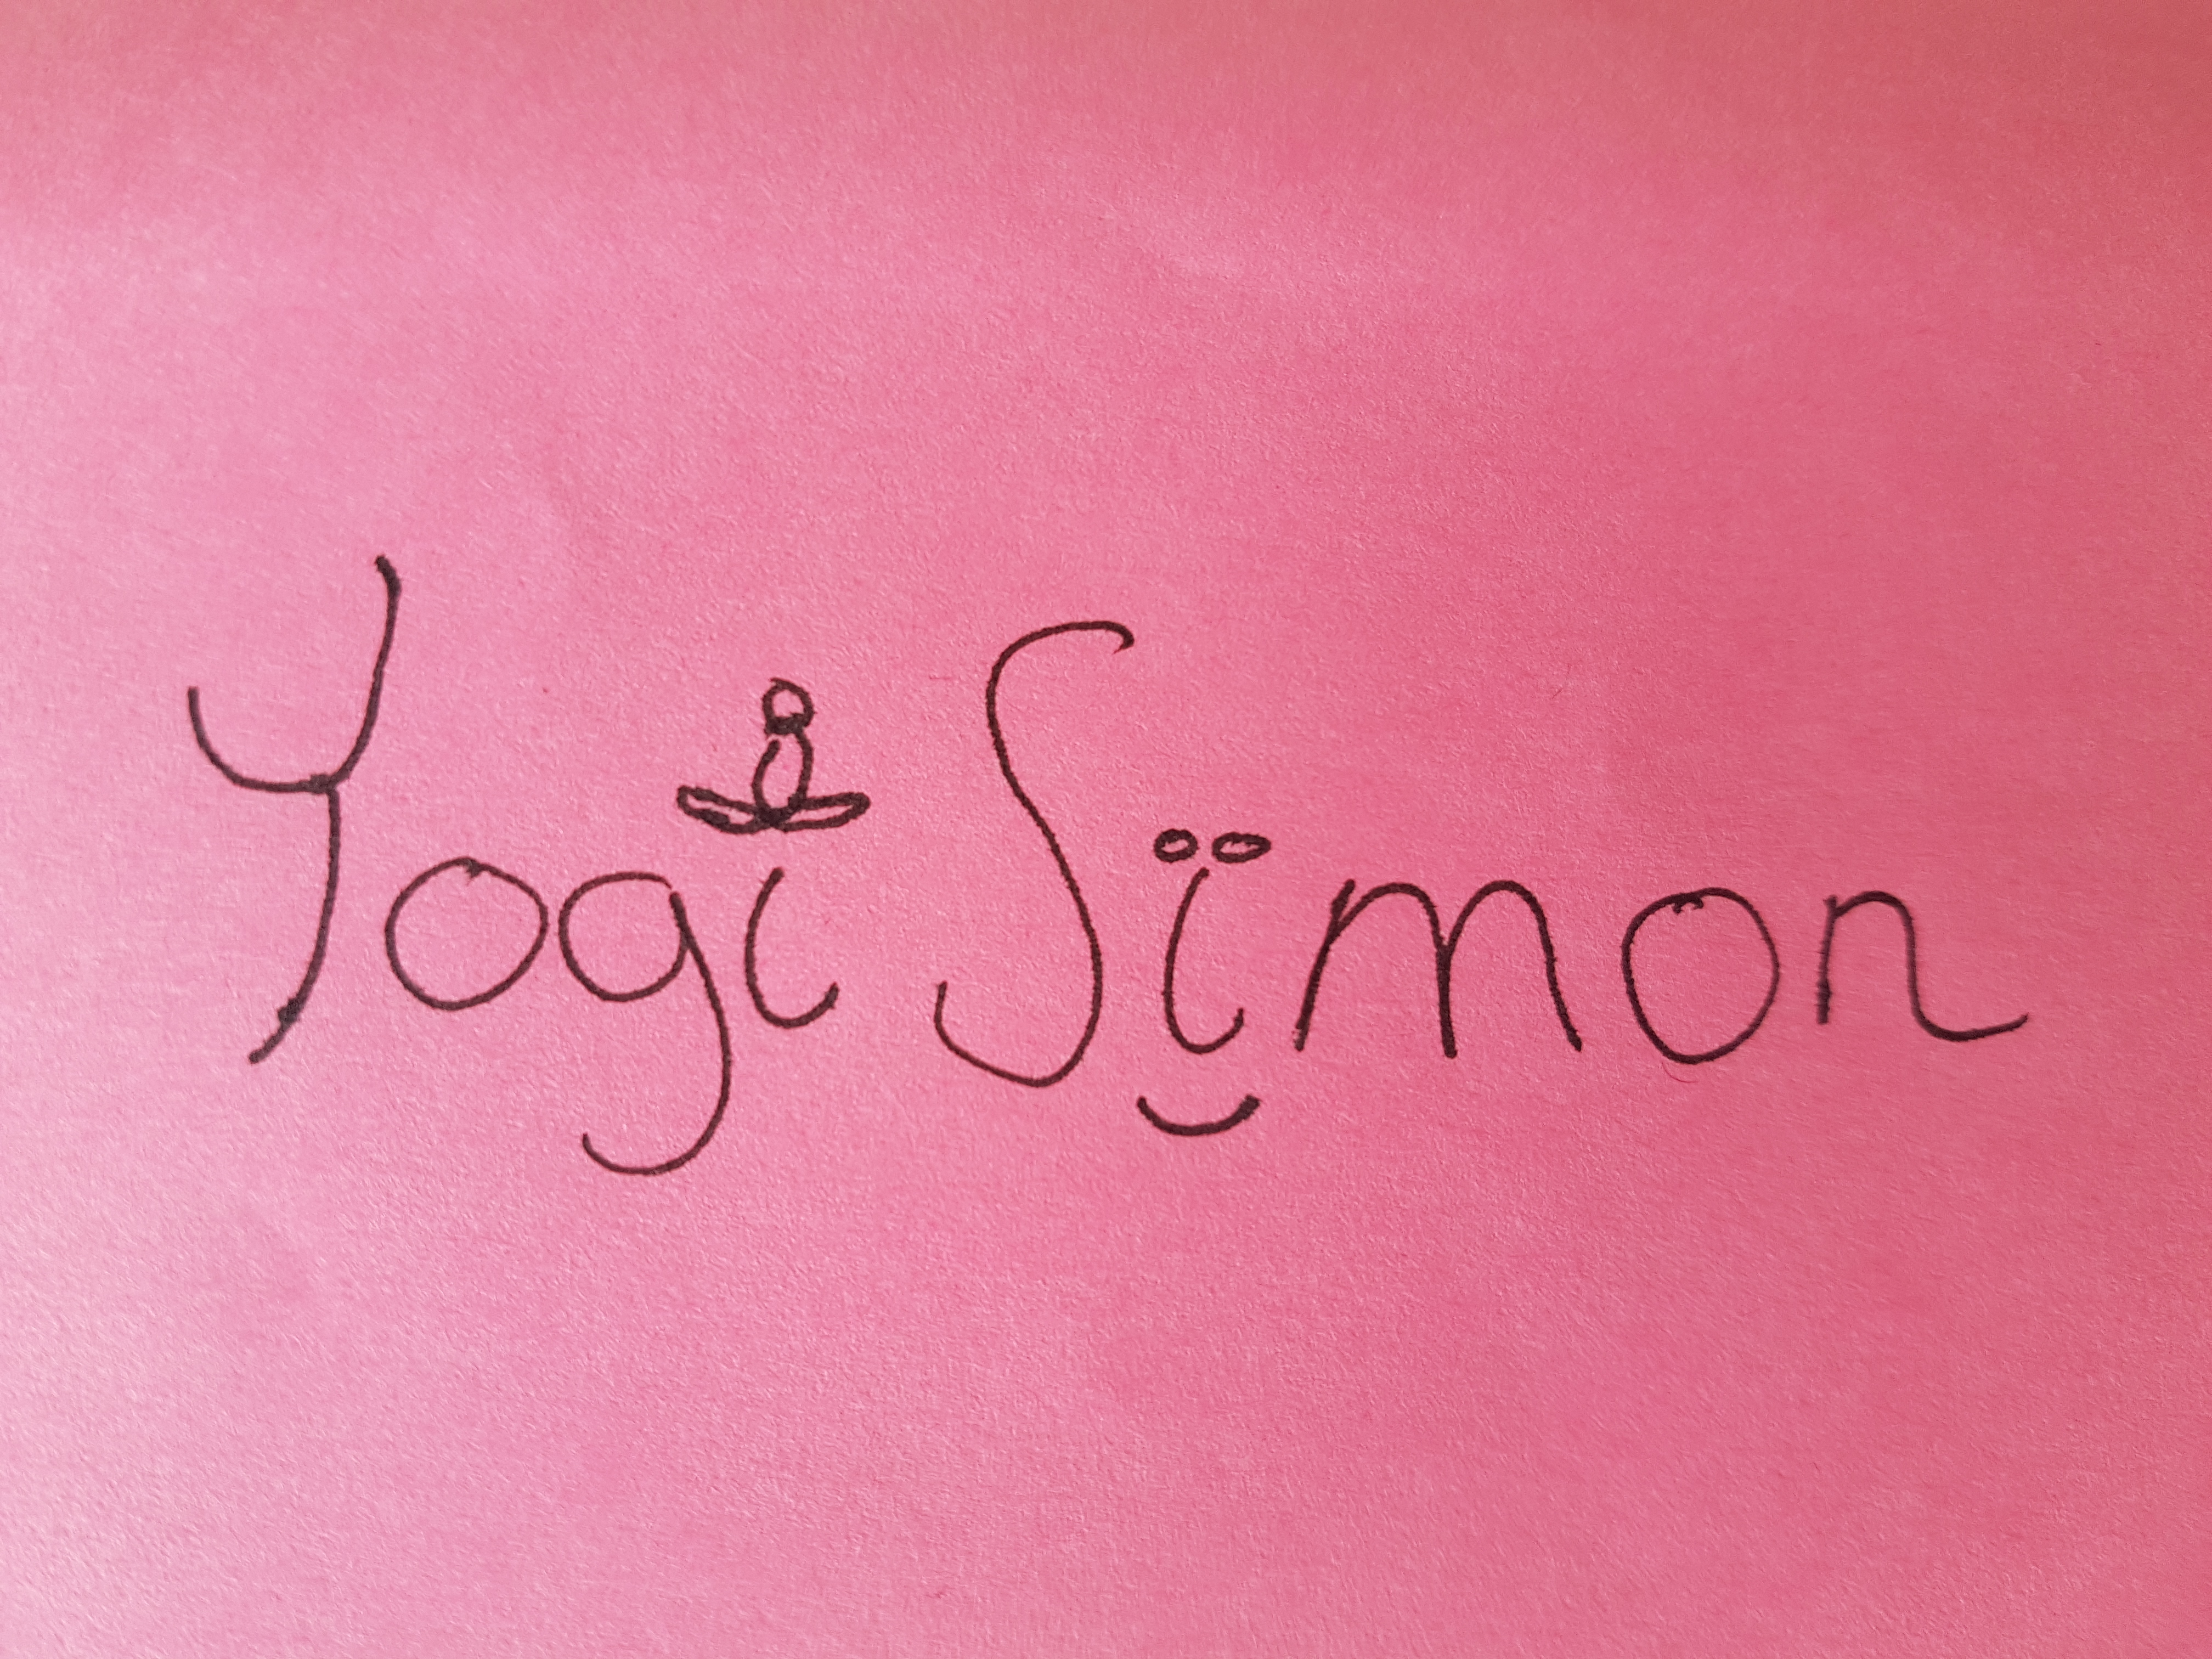 Yogi Simon